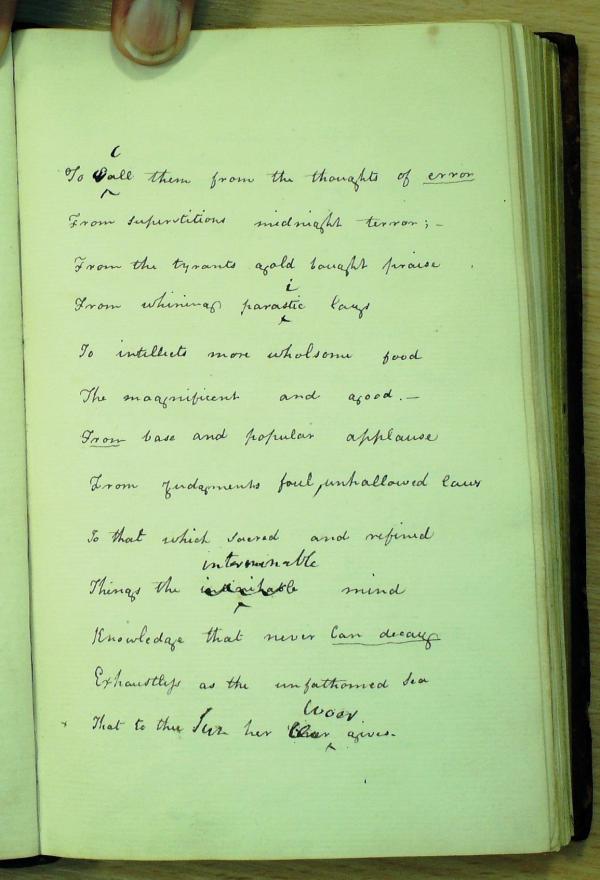 To call them from the thoughts of error
From superstitions midnight terror; -
From the tyrants gold bought praise
From whining parasitic lays
To intellects more wholsome food
The magnificent and good. -
From base and popular applause
From judgments foul, unhallowed laws
To that which sacred and refined
interminable
Things the mind
Knowledge that never can decay
Exhaustless as the unfathomed sea
That to the Sun her gives.